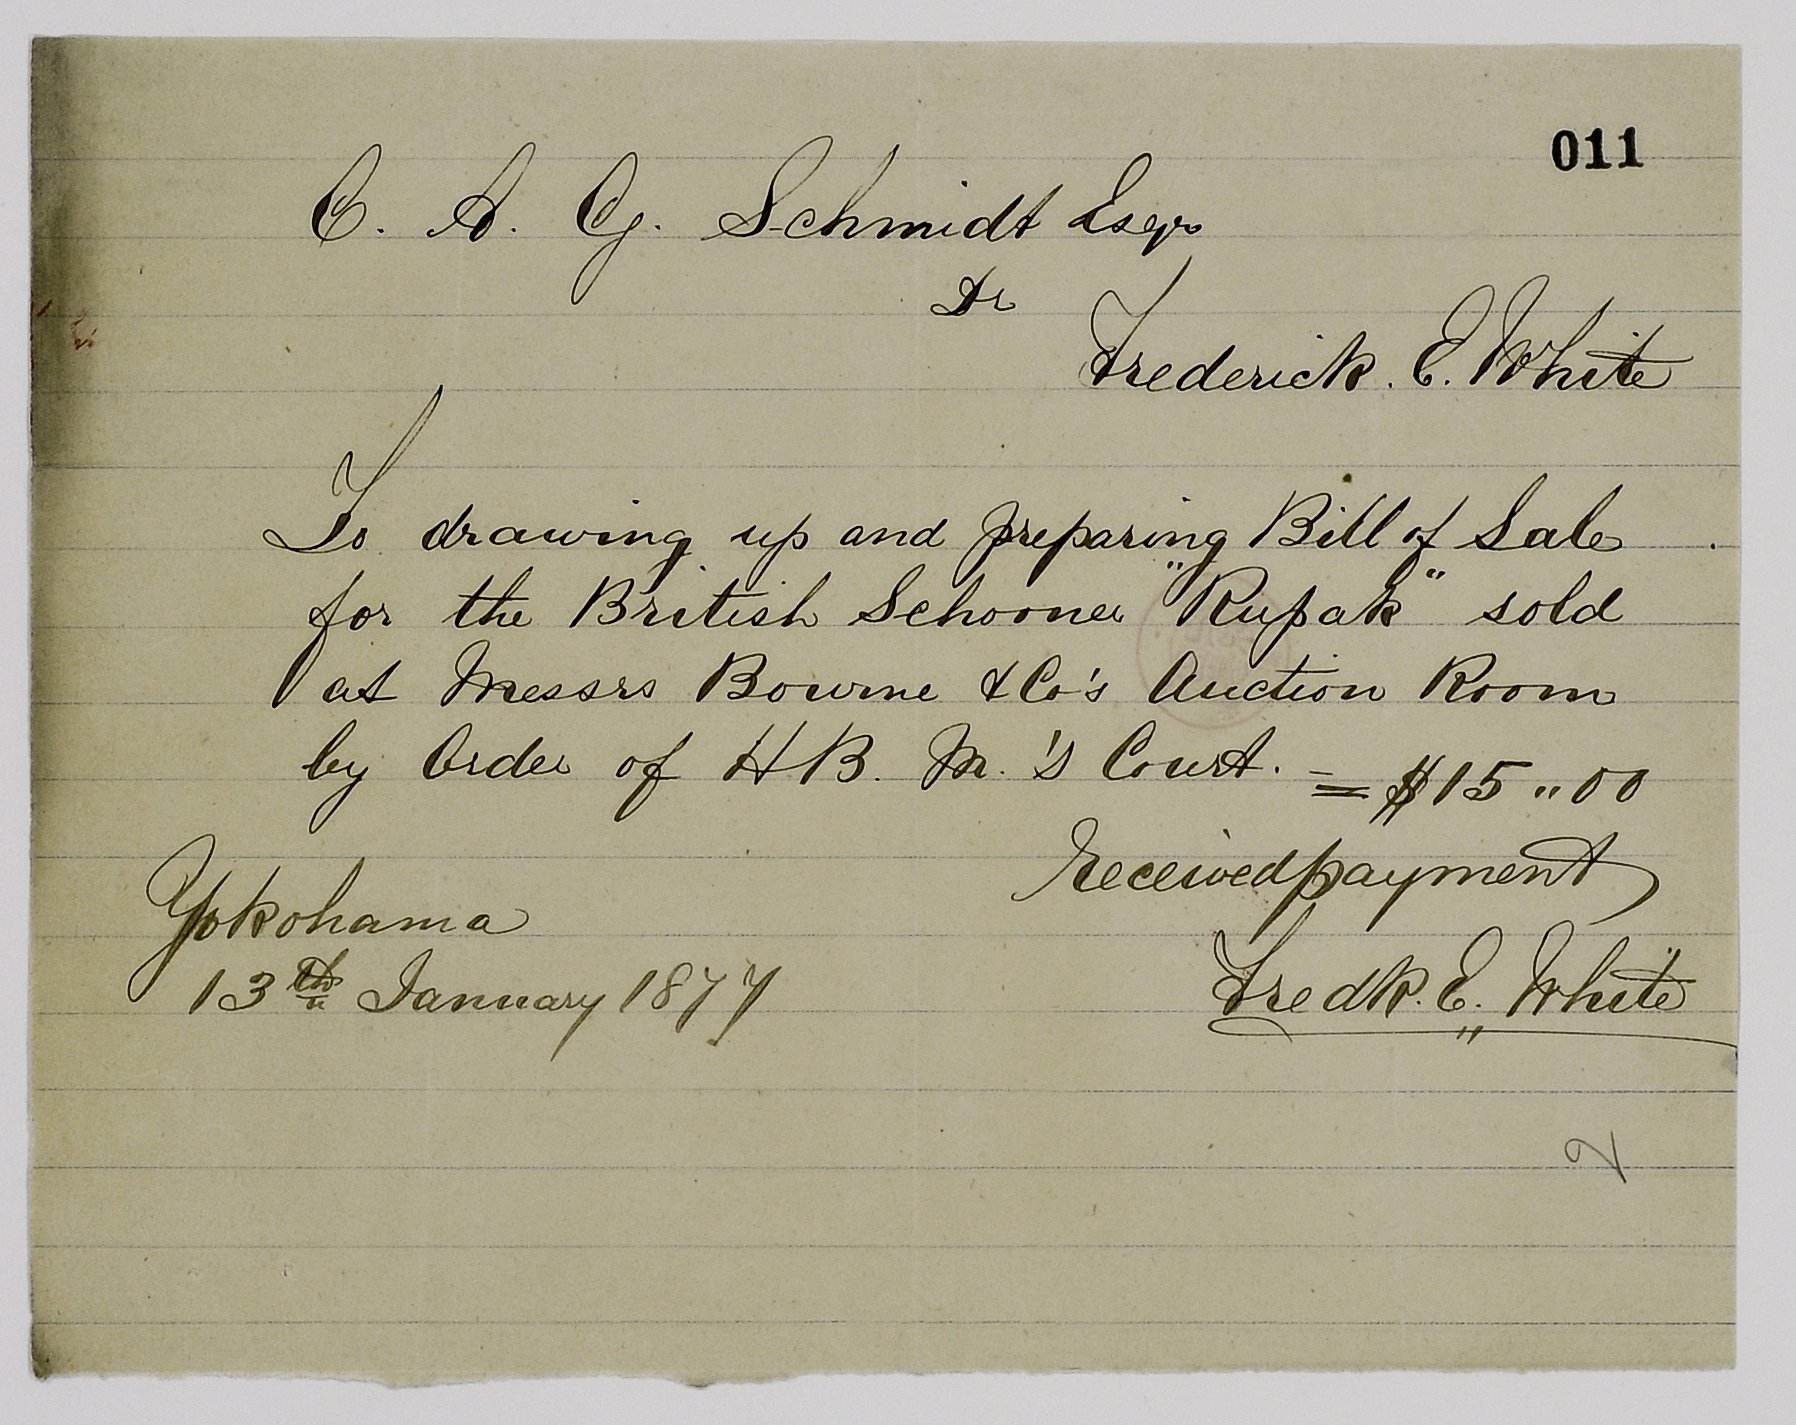 011
C. A. G. Schmidt Esqr
Dr
Frederick. E. White
To drawing up and preparing Bill of Sale
for the British Schooner "Rupak" sold
at Messrs Bourne & Co's Auction Room
by Order of H B. M.'s Court. = $15 ,, 00
Received payment
Yokohama
Fredk. E. White
13th January 1877
2